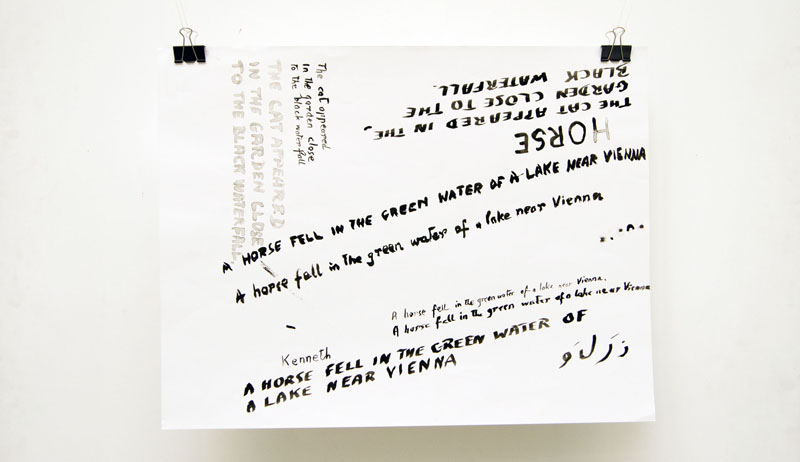 The cat appeared
in the garden close
to the black waterfall
THE CAT APPEARED
IN THE GARDEN CLOSE
TO THE BLACK WATERFALL.
HORSE
THE CAT APPEARED IN THE
GARDEN CLOSE TO THE
BLACK WATERFALL.
A HORSE FELL IN THE GREEN WATER OF A LAKE NEAR VIENNA
A horse fell in the green water of a lake near Vienna
A horse fell in the green water of a lake near Vienna.
A horse fell in the green water of a lake near Vienna
Kenneth
A HORSE FELL IN THE GREEN WATER OF
A LAKE NEAR VIENNA